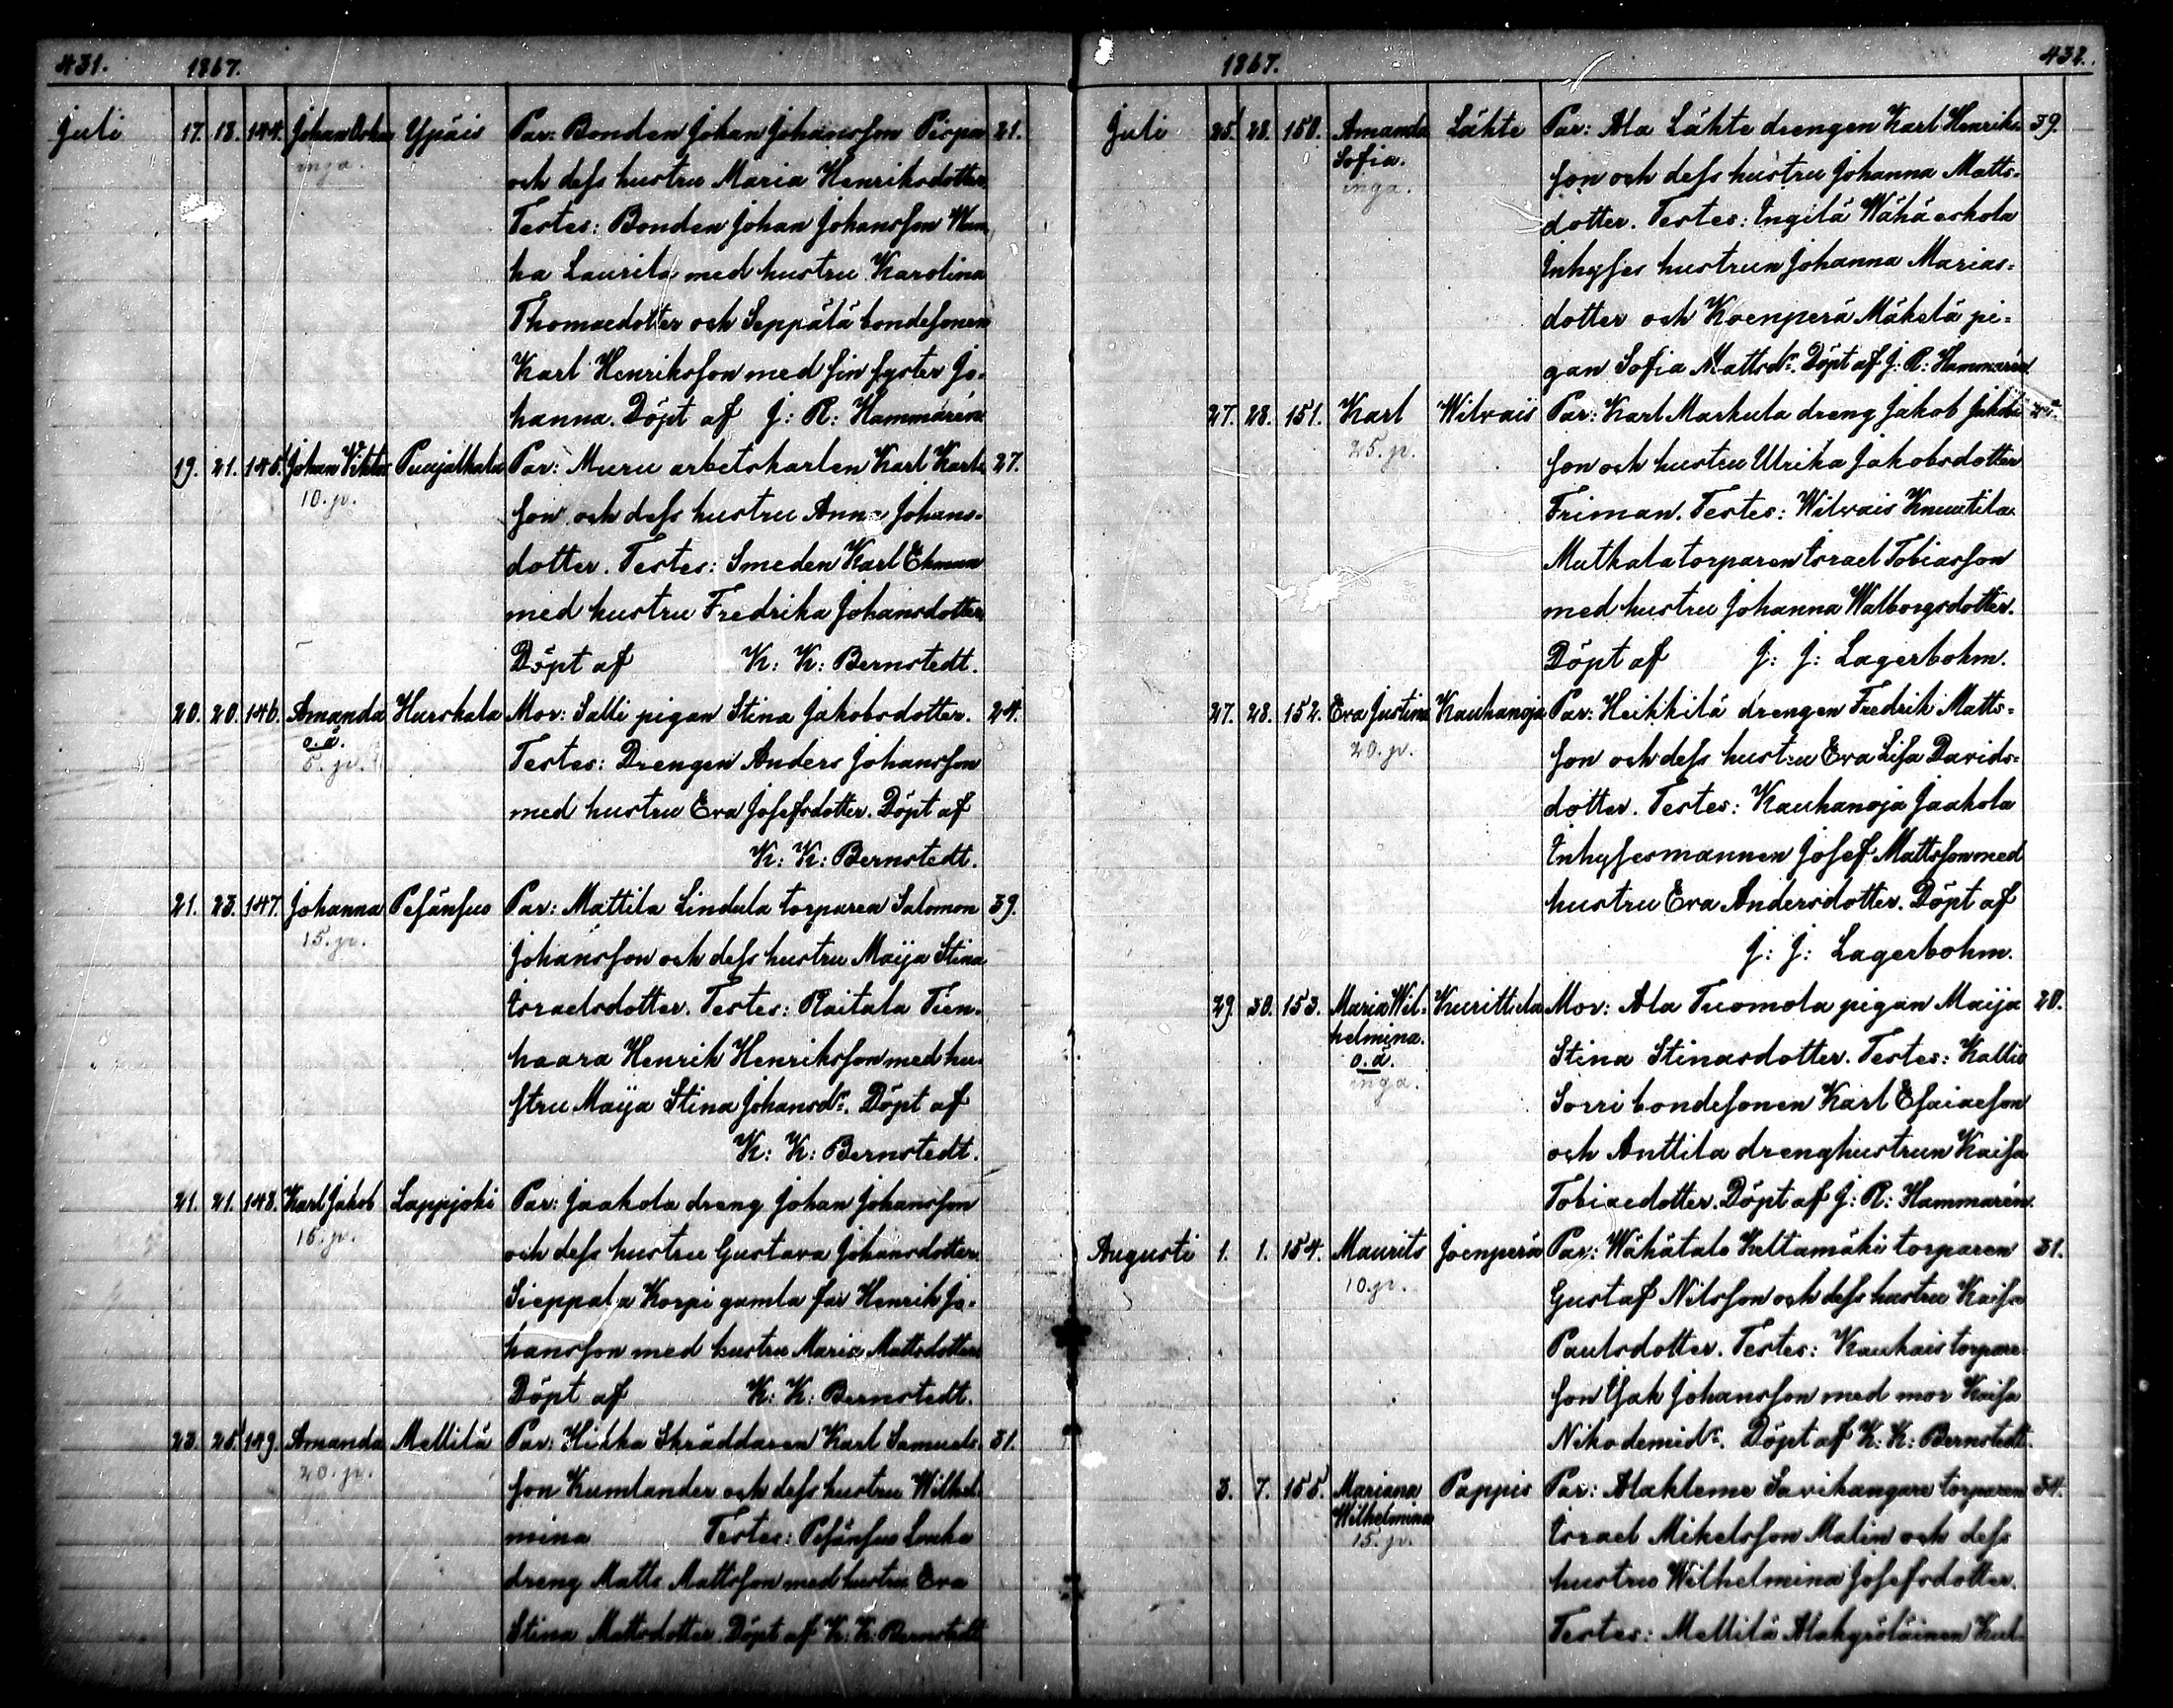 431. 1867.
Juli 17. 18. 144. Johan Oskar Ypäis Par: Bonden Johan Johansson Pispa 21.
inga. och dess hustru Maria Henriksdotter
Testes: Bonden Johan Johansson Wan
ha Laurila med hustru Karolina
Thomasdotter och Seppälä bondesonen
Karl Henriksson med sin syster Jo-
hanna. Döpt af J: R: Hammarén
19. 21. 145. Johan Viktor Puujalkala Par: Muru arbetskarlen Karl Karls 27.
10. p. son och dess hustru Anna Johans-
dotter. Testes: Smeden Karl Ekman
med hustru Fredrika Johansdotter
Döpt af K: K: Bernstedt.
20. 20. 146. Amanda Hurskala Mor: Salli pigan Stina Jakobsdotter. 24.
o.ä.
5. p. Testes: Drengen Anders Johansson
med hustru Eva Josefsdotter. Döpt af
K: K: Bernstedt.
21. 23. 147. Johanna Pesänsuo Par: Mattila Lindula torparen Salomon 39.
15. p. Johansson och dess hustru Maija Stina
Israelsdotter. Testes: Raitala Tien-
haara Henrik Henriksson med hu-
stru Maija Stina Johansdr. Döpt af
K: K: Bernstedt.
21. 21. 148. Karl Jakob Lappjoki Par: Jaakola dreng Johan Johansson
15. p. och dess hustru Gustava Johansdotter
Sieppala Korpi gamla far Henrik Jo-
hansson med hustru Maria Mattsdotter
Döpt af K: K: Bernstedt.
23. 25. 149. Amanda Mellilä Par: Hikka Skräddaren Karl Samuels- 31.
20. p. son Kumlander och dess hustru Wilhel
mina Testes: Pesänsuo
dreng Matts Mattsson med hustru Eva
Stina Mattsdotter. Döpt af K: K: Bernstedt
1867. 432.
Juli 25. 28. 150. Amanda Lähte Par: Ala Lähte drengen Karl Henriks- 39.
Sofia.
inga. son och dess hustru Johanna Matts-
dotter. Testes: Ingilä Wähäeskola
Inhyses hustrun Johanna Marias-
dotter och Koenperä Mäkelä pi-
gan Sofia Mattsdr. Döpt af J: R: Hammarén
27. 28. 151. Karl Wilvais Par: Karl Markula dreng Jakob Jakobs
25. p. son och hustru Ulrika Jakobsdotter
Friman. Testes: Wilvais Knuutila
Matkala torparen Israel Tobiasson
med hustru Johanna Walborgsdotter.
Döpt af J: J: Lagerbohm.
27. 28. 152. Eva Justina Kauhanoja Par: Heikkilä drengen Fredrik Matts-
20. p. son och dess hustru Eva Lisa Davids-
dotter. Testes: Kauhanoja Jaakola
Inhysesmannen Josef Mattsson med
hustru Eva Andersdotter. Döpt af
J: J: Lagerbohm.
29. 30. 153. Maria Wil- Kurittula Mor: Ala Tuomola pigan Maija 20.
helmina.
o.ä. Stina Stinasdotter. Testes: Kallio
inga. Sorri bondesonen Karl Esaiaeson
och Anttila drenghustrun Kaisa
Tobiaedotter. Döpt af J: R: Hammarén.
Augusti 1. 1. 154. Maurits Joenperä Par: Wähätalo Keltamäki torparen 31.
10. p. Gustaf Nilsson och dess hustru Kaisa
Paulsdotter. Testes: Kauhais torpare-
son Isak Johansson med mor Kaisa
Nikodemidr. Döpt af K: K: Bernstedt.
3. 7. 155. Mariana Pappis Par: Alakleme Savikangare torparen 34.
Wilhelmina
15. p. Israel Mikelsson Malin och dess
hustru Wilhelmina Josefsdotter.
Testes: Mellilä Alakyröläinen Kul-